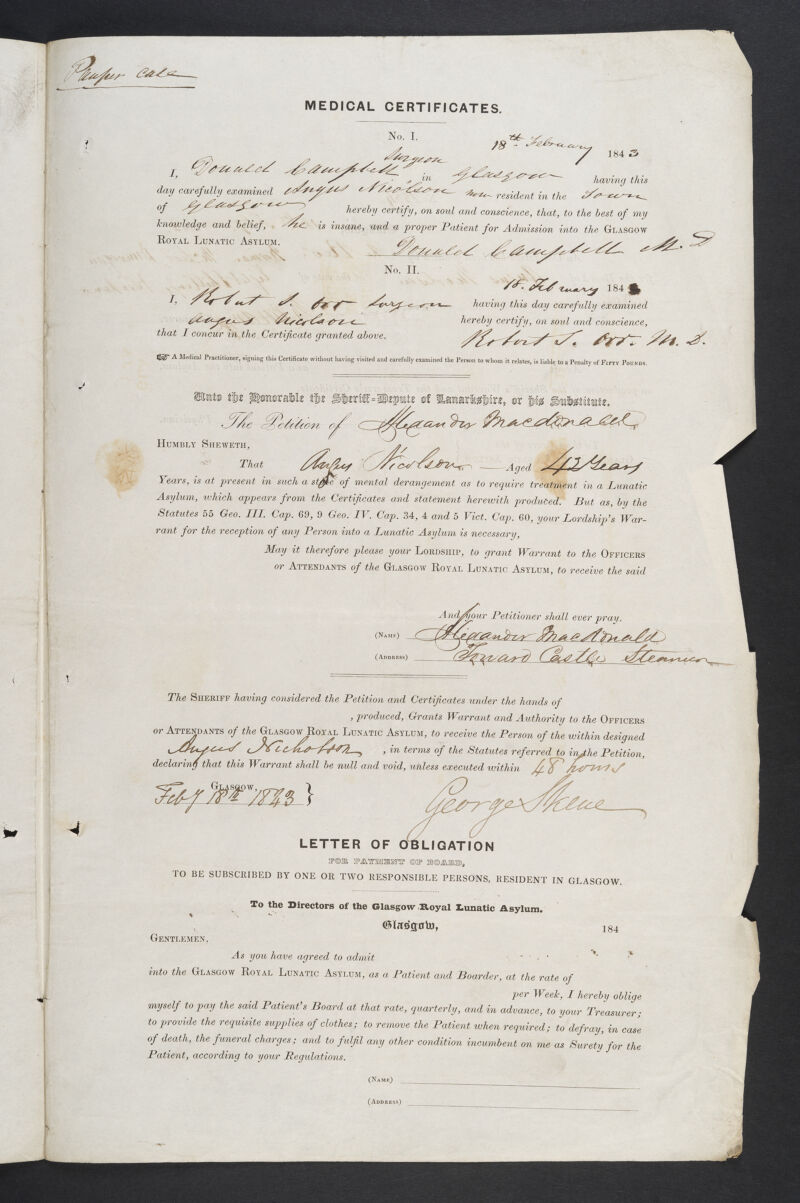 Pauper Case
MEDICAL CERTIFICATES.
No. I.
18th February 1843
Surgeon
I, Donald Campbell in Glasgow having this
day carefully examined Angus Nicolson now resident in the Town
of Glasgow hereby certify, on soul and conscience, that, to the best of my
knowledge and belief, he is insane, and a proper Patient for Admission into the GLASGOW
ROYAL LUNATIC ASYLUM.
Donald Campbell M.D
No. II.
18. February 184
I, Robert S. Orr Surgeon having this day carefully examined
Angus Nicolson hereby certify, on soul and conscience,
that I concur in the Certificate granted above.
Robert S. Orr. M.D.
☞ A Medical Practitioner, signing this Certificate without having visited and carefully examined the Person to whom it relates, is liable to a Penalty of FIFTY POUNDS.
Unto the Honorable the Sheriff-Depute of Lanarkshire, or his Substitute.
The Petition of Alexander Macdonald
HUMBLY SHEWETH,
That Angus Nicolson Aged 42 Years
Years, is at present in such a state of mental derangement as to require treatment in a Lunatic
Asylum, which appears from the Certificates and statement herewith produced. But as, by the
Statutes 55 Geo. III. Cap. 69, 9 Geo. IV. Cap. 34, 4 and 5 Vict. Cap. 60, your Lordship's War-
rant for the reception of any Person into a Lunatic Asylum is necessary,
May it therefore please your LORDSHIP, to grant Warrant to the OFFICERS
or ATTENDANTS of the GLASGOW ROYAL LUNATIC ASYLUM, to receive the said
And your Petitioner shall ever pray.
(NAME) Alexander Macdonald
(ADDRESS) Toward Castle Steamer
The SHERIFF having considered the Petition and Certificates under the hands of
, produced, Grants Warrant and Authority to the OFFICERS
or ATTENDANTS of the GLASGOW ROYAL LUNATIC ASYLUM, to receive the Person of the within designed
Angus Nicholson , in terms of the Statutes referred to in the Petition,
declaring that this Warrant shall be null and void, unless executed within 48 hours
GLASGOW,
Feby 18th 1843 }
George Skene
LETTER OF OBLIGATION
FOR PAYMENT OF BOARD,
TO BE SUBSCRIBED BY ONE OR TWO RESPONSIBLE PERSONS, RESIDENT IN GLASGOW.
To the Directors of the Glasgow Royal Lunatic Asylum.
Glasgow, 184
GENTLEMEN,
As you have agreed to admit
into the GLASGOW ROYAL LUNATIC ASYLUM, as a Patient and Boarder, at the rate of
per Week, I hereby oblige
myself to pay the said Patient's Board at that rate, quarterly, and in advance, to your Treasurer;
to provide the requisite supplies of clothes; to remove the Patient when required; to defray, in case
of death, the funeral charges; and to fulfil any other condition incumbent on me as Surety for the
Patient, according to your Regulations.
(NAME)
(ADDRESS)